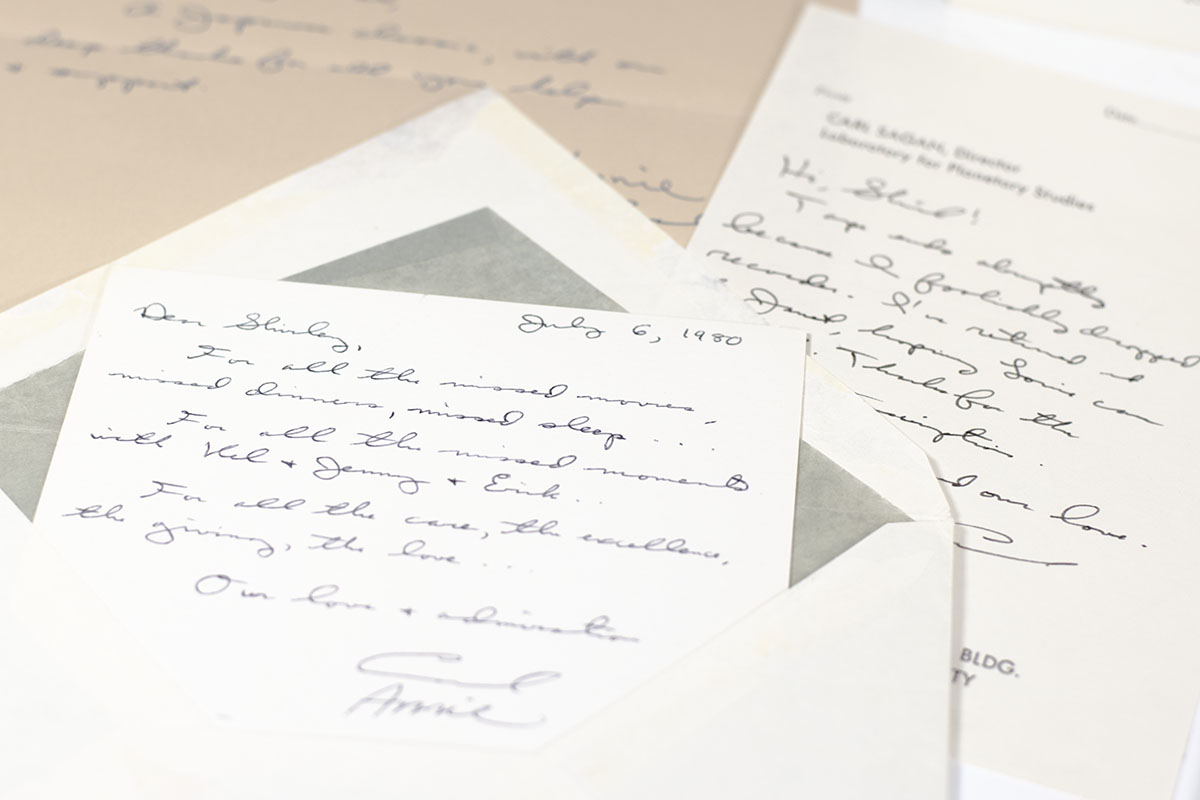 a Japanese classic, with our
deep thanks for all your help
+ support.
Annie
Dear Shirley,
July 6, 1980
For all the missed movies,
missed dinners, missed sleep . . .
For all the missed moments
with Hal + Jenny + Erik . . .
For all the care, the excellence,
the giving, the love . . . .
Our love + admiration
Carl
Annie
From
Date
CARL SAGAN, Director
Laboratory for Planetary Studies
Hi, Shirl!
Tape ends abruptly
because I foolishly dropped
recorder. I've returned it
Janet, hoping Lorie can
. Thanks for the
.
our love.
BLDG.
TY